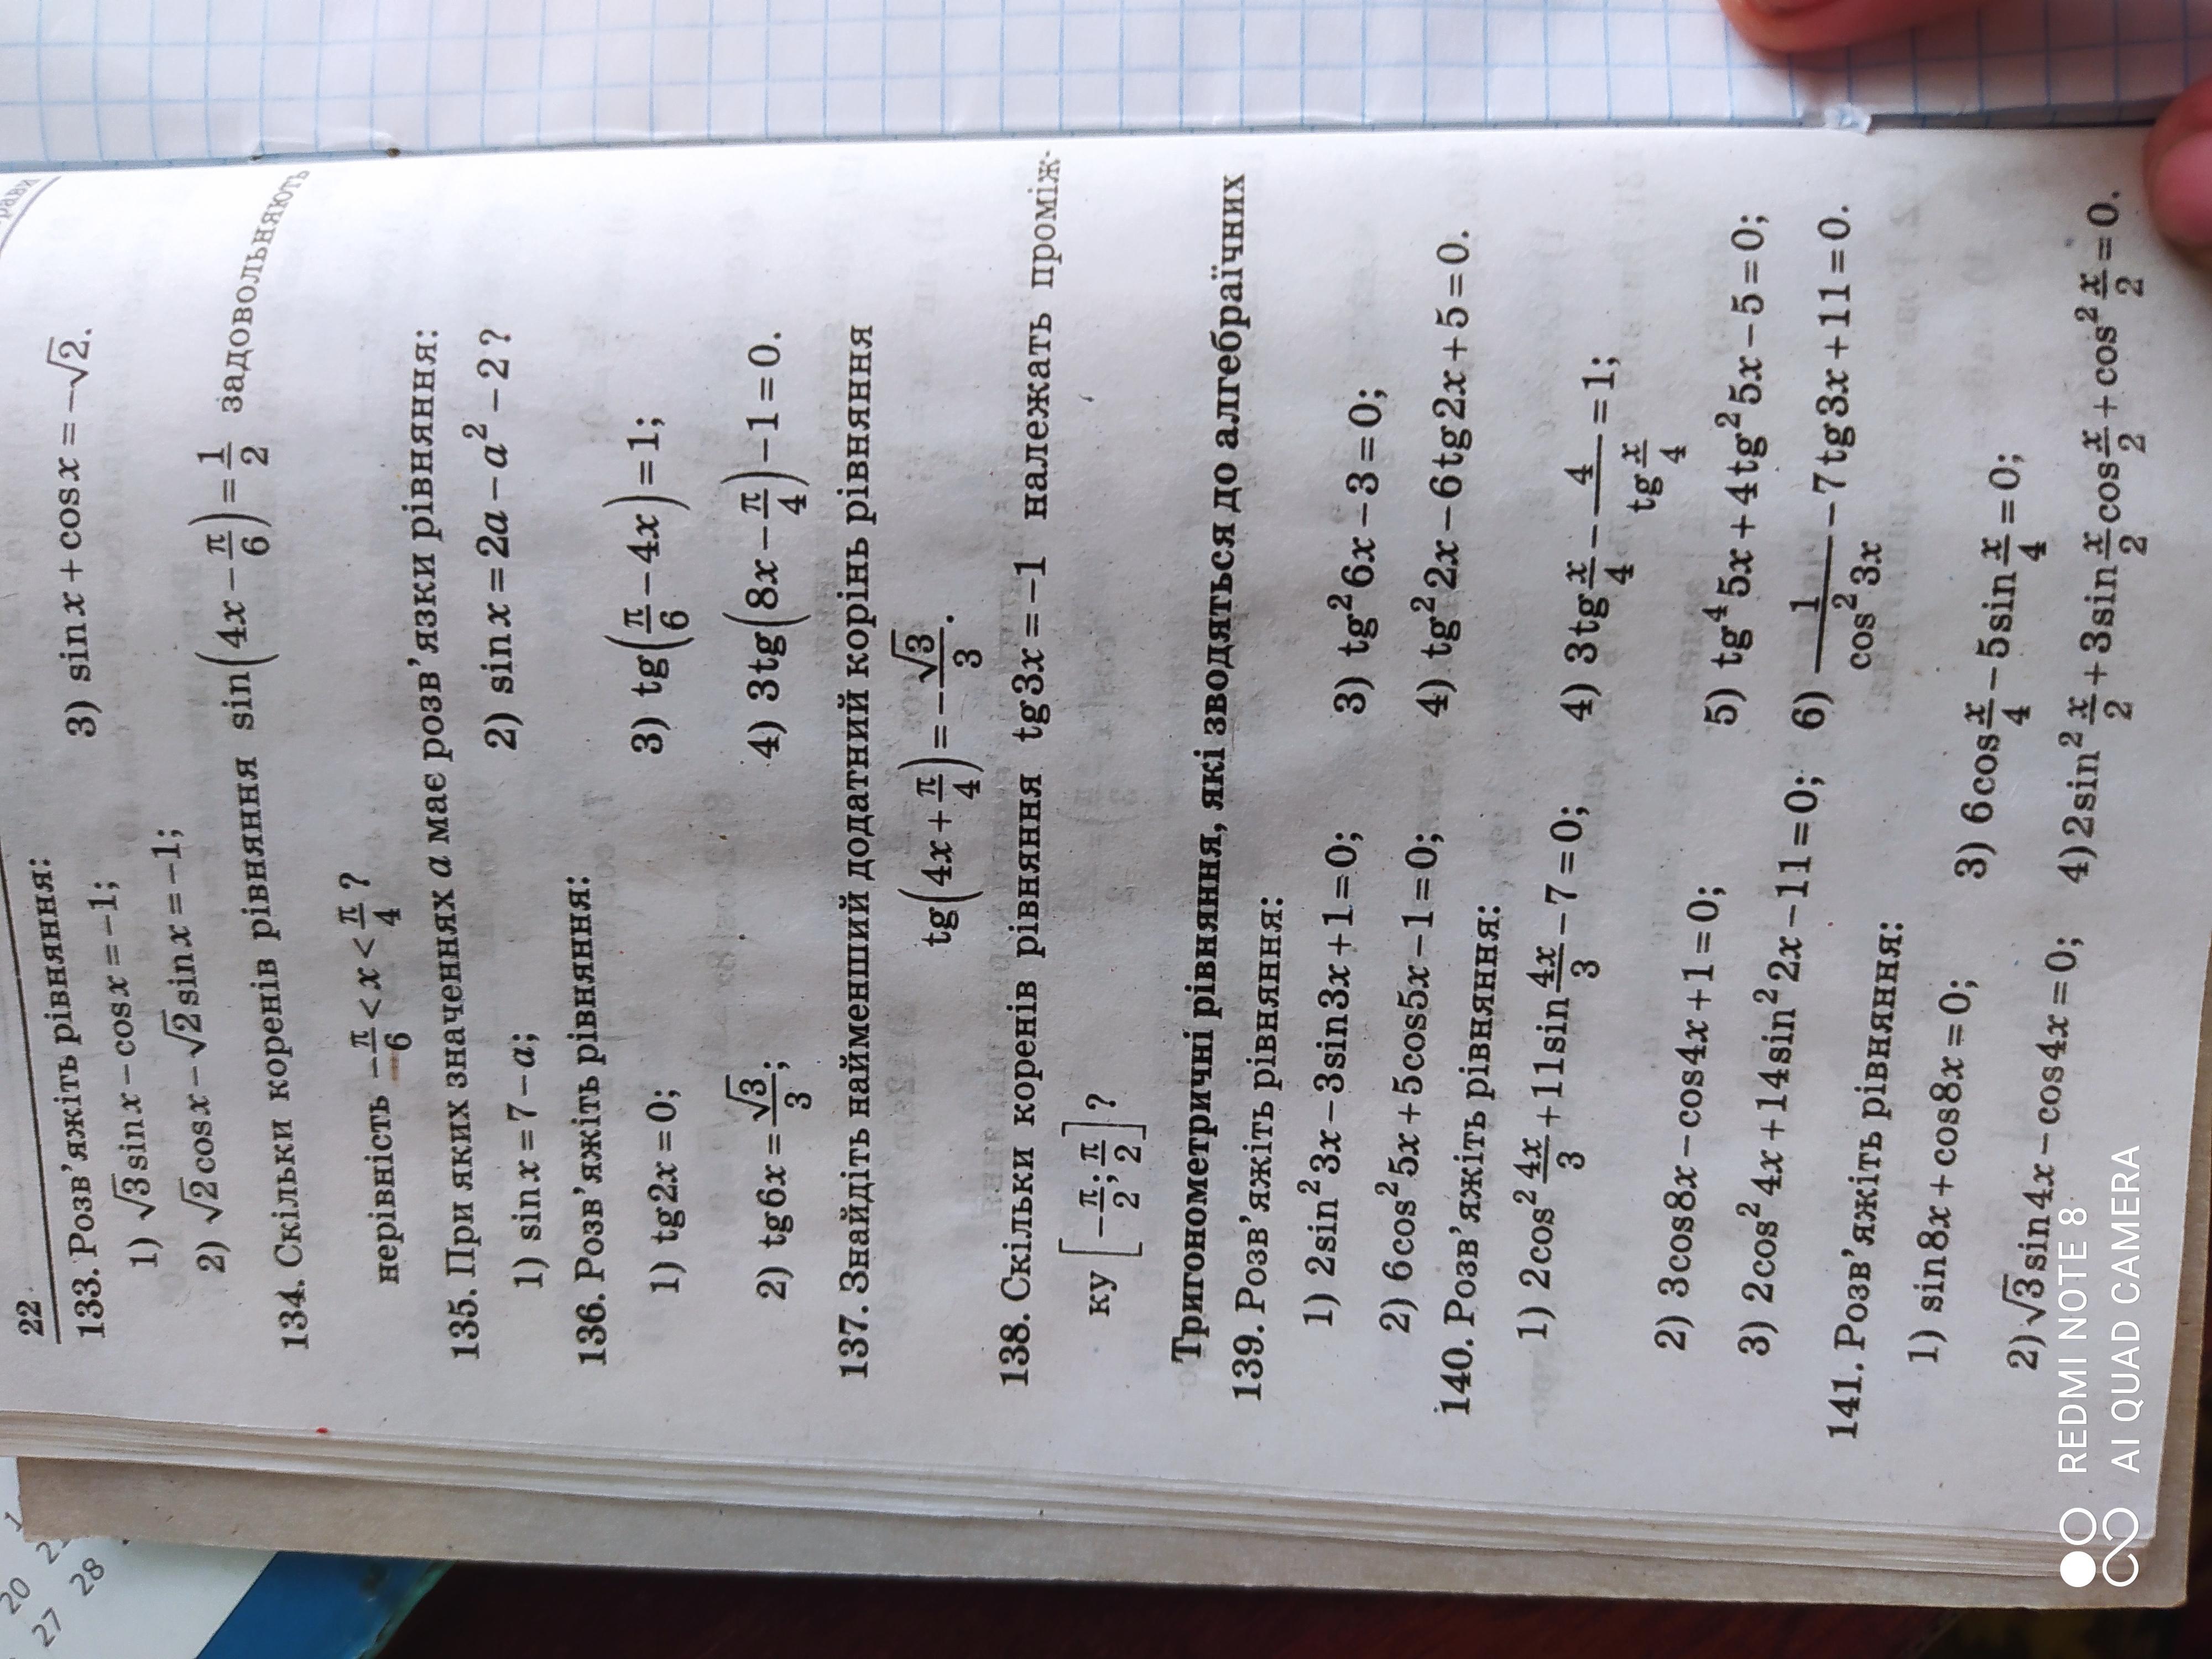 22
133. Розв'яжіть рівняння:
1) √3 sin x − cos x = −1; 3) sin x + cos x = −√2.
2) √2 cos x − √2 sin x = −1;
134. Скільки коренів рівняння sin(4x − π/6) = 1/2 задовольняють
нерівність −π/6 < x < π/4?
135. При яких значеннях a має розв'язки рівняння:
1) sin x = 7 − a; 2) sin x = 2a − a² − 2?
136. Розв'яжіть рівняння:
1) tg 2x = 0; 3) tg(π/6 − 4x) = 1;
2) tg 6x = √3/3; 4) 3tg(8x − π/4) − 1 = 0.
137. Знайдіть найменший додатний корінь рівняння
tg(4x + π/4) = −√3/3.
138. Скільки коренів рівняння tg 3x = −1 належать проміж-
ку [−π/2; π/2]?
Тригонометричні рівняння, які зводяться до алгебраїчних
139. Розв'яжіть рівняння:
1) 2sin² 3x − 3sin 3x + 1 = 0; 3) tg² 6x − 3 = 0;
2) 6cos² 5x + 5cos 5x − 1 = 0; 4) tg² 2x − 6tg 2x + 5 = 0.
140. Розв'яжіть рівняння:
1) 2cos² 4x/3 + 11sin 4x/3 − 7 = 0; 4) 3tg x/4 − 4/(tg x/4) = 1;
2) 3cos 8x − cos 4x + 1 = 0; 5) tg⁴ 5x + 4tg² 5x − 5 = 0;
3) 2cos² 4x + 14sin² 2x − 11 = 0; 6) 1/(cos² 3x) − 7tg 3x + 11 = 0.
141. Розв'яжіть рівняння:
1) sin 8x + cos 8x = 0; 3) 6cos x/4 − 5sin x/4 = 0;
2) √3 sin 4x − cos 4x = 0; 4) 2sin² x/2 + 3sin x/2 cos x/2 + cos² x/2 = 0.
20 21
27 28
REDMI NOTE 8
AI QUAD CAMERA